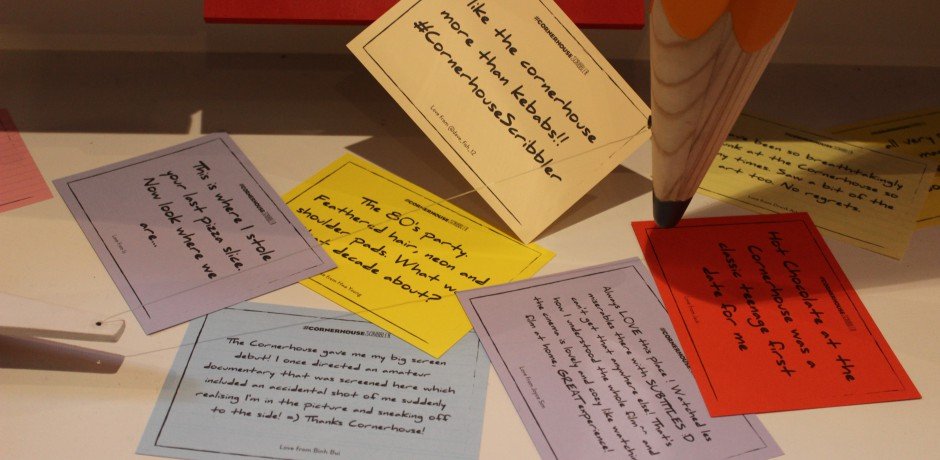 #CORNERHOUSESCRIBBLER
like the cornerhouse
more than kebabs!!
#CornerhouseScribbler
Love from @dave_fish_12
This is where I stole
your last pizza slice.
Now look where we
are..
#CORNERHOUSESCRIBBLER
The 80's party.
Feathered hair, neon and
shoulder pads. What
decade about?
#CORNERHOUSESCRIBBLER
The Cornerhouse gave me my big screen
debut! I once directed an amateur
documentary that was screened here which
included an accidental shot of me suddenly
realising I'm in the picture and sneaking off
to the side! a) Thanks Cornerhouse!
Love from Binh Bui
#CORNERHOUSE
Always LOVE this place! Watched les
miserables there with SUBTITLES :D
can't get that anywhere else! That's
how I understood the whole film ^^ and
the cinema is lovely and cosy like watching
film at home, GREAT experience!
#CORNERHOUSESCRIBBLER
Hot Chocolate at the
Cornerhouse was a
classic teenage first
date for me
been so breathtakingly
at the Cornerhouse so
times. Saw a bit of the
art too. No regrets.
all very